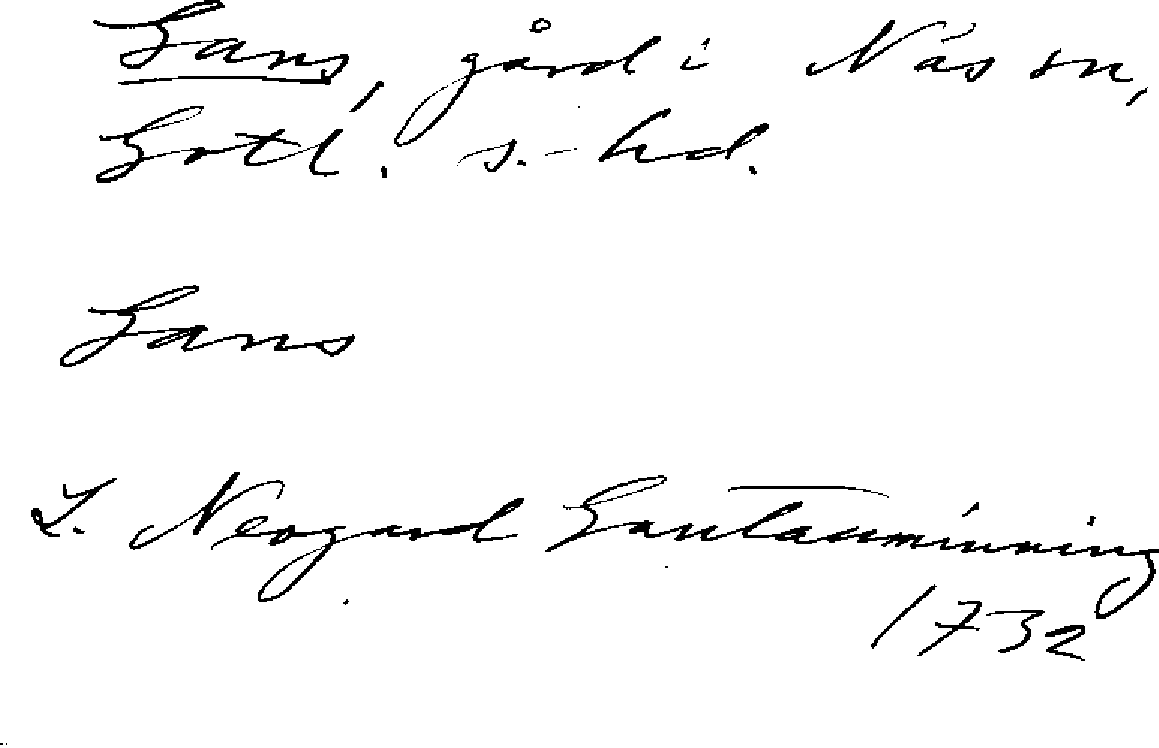 Gans, gård i Näs sn,
Gotl. s.-hd.
Gans
J. Neogard Gautauminning
1732